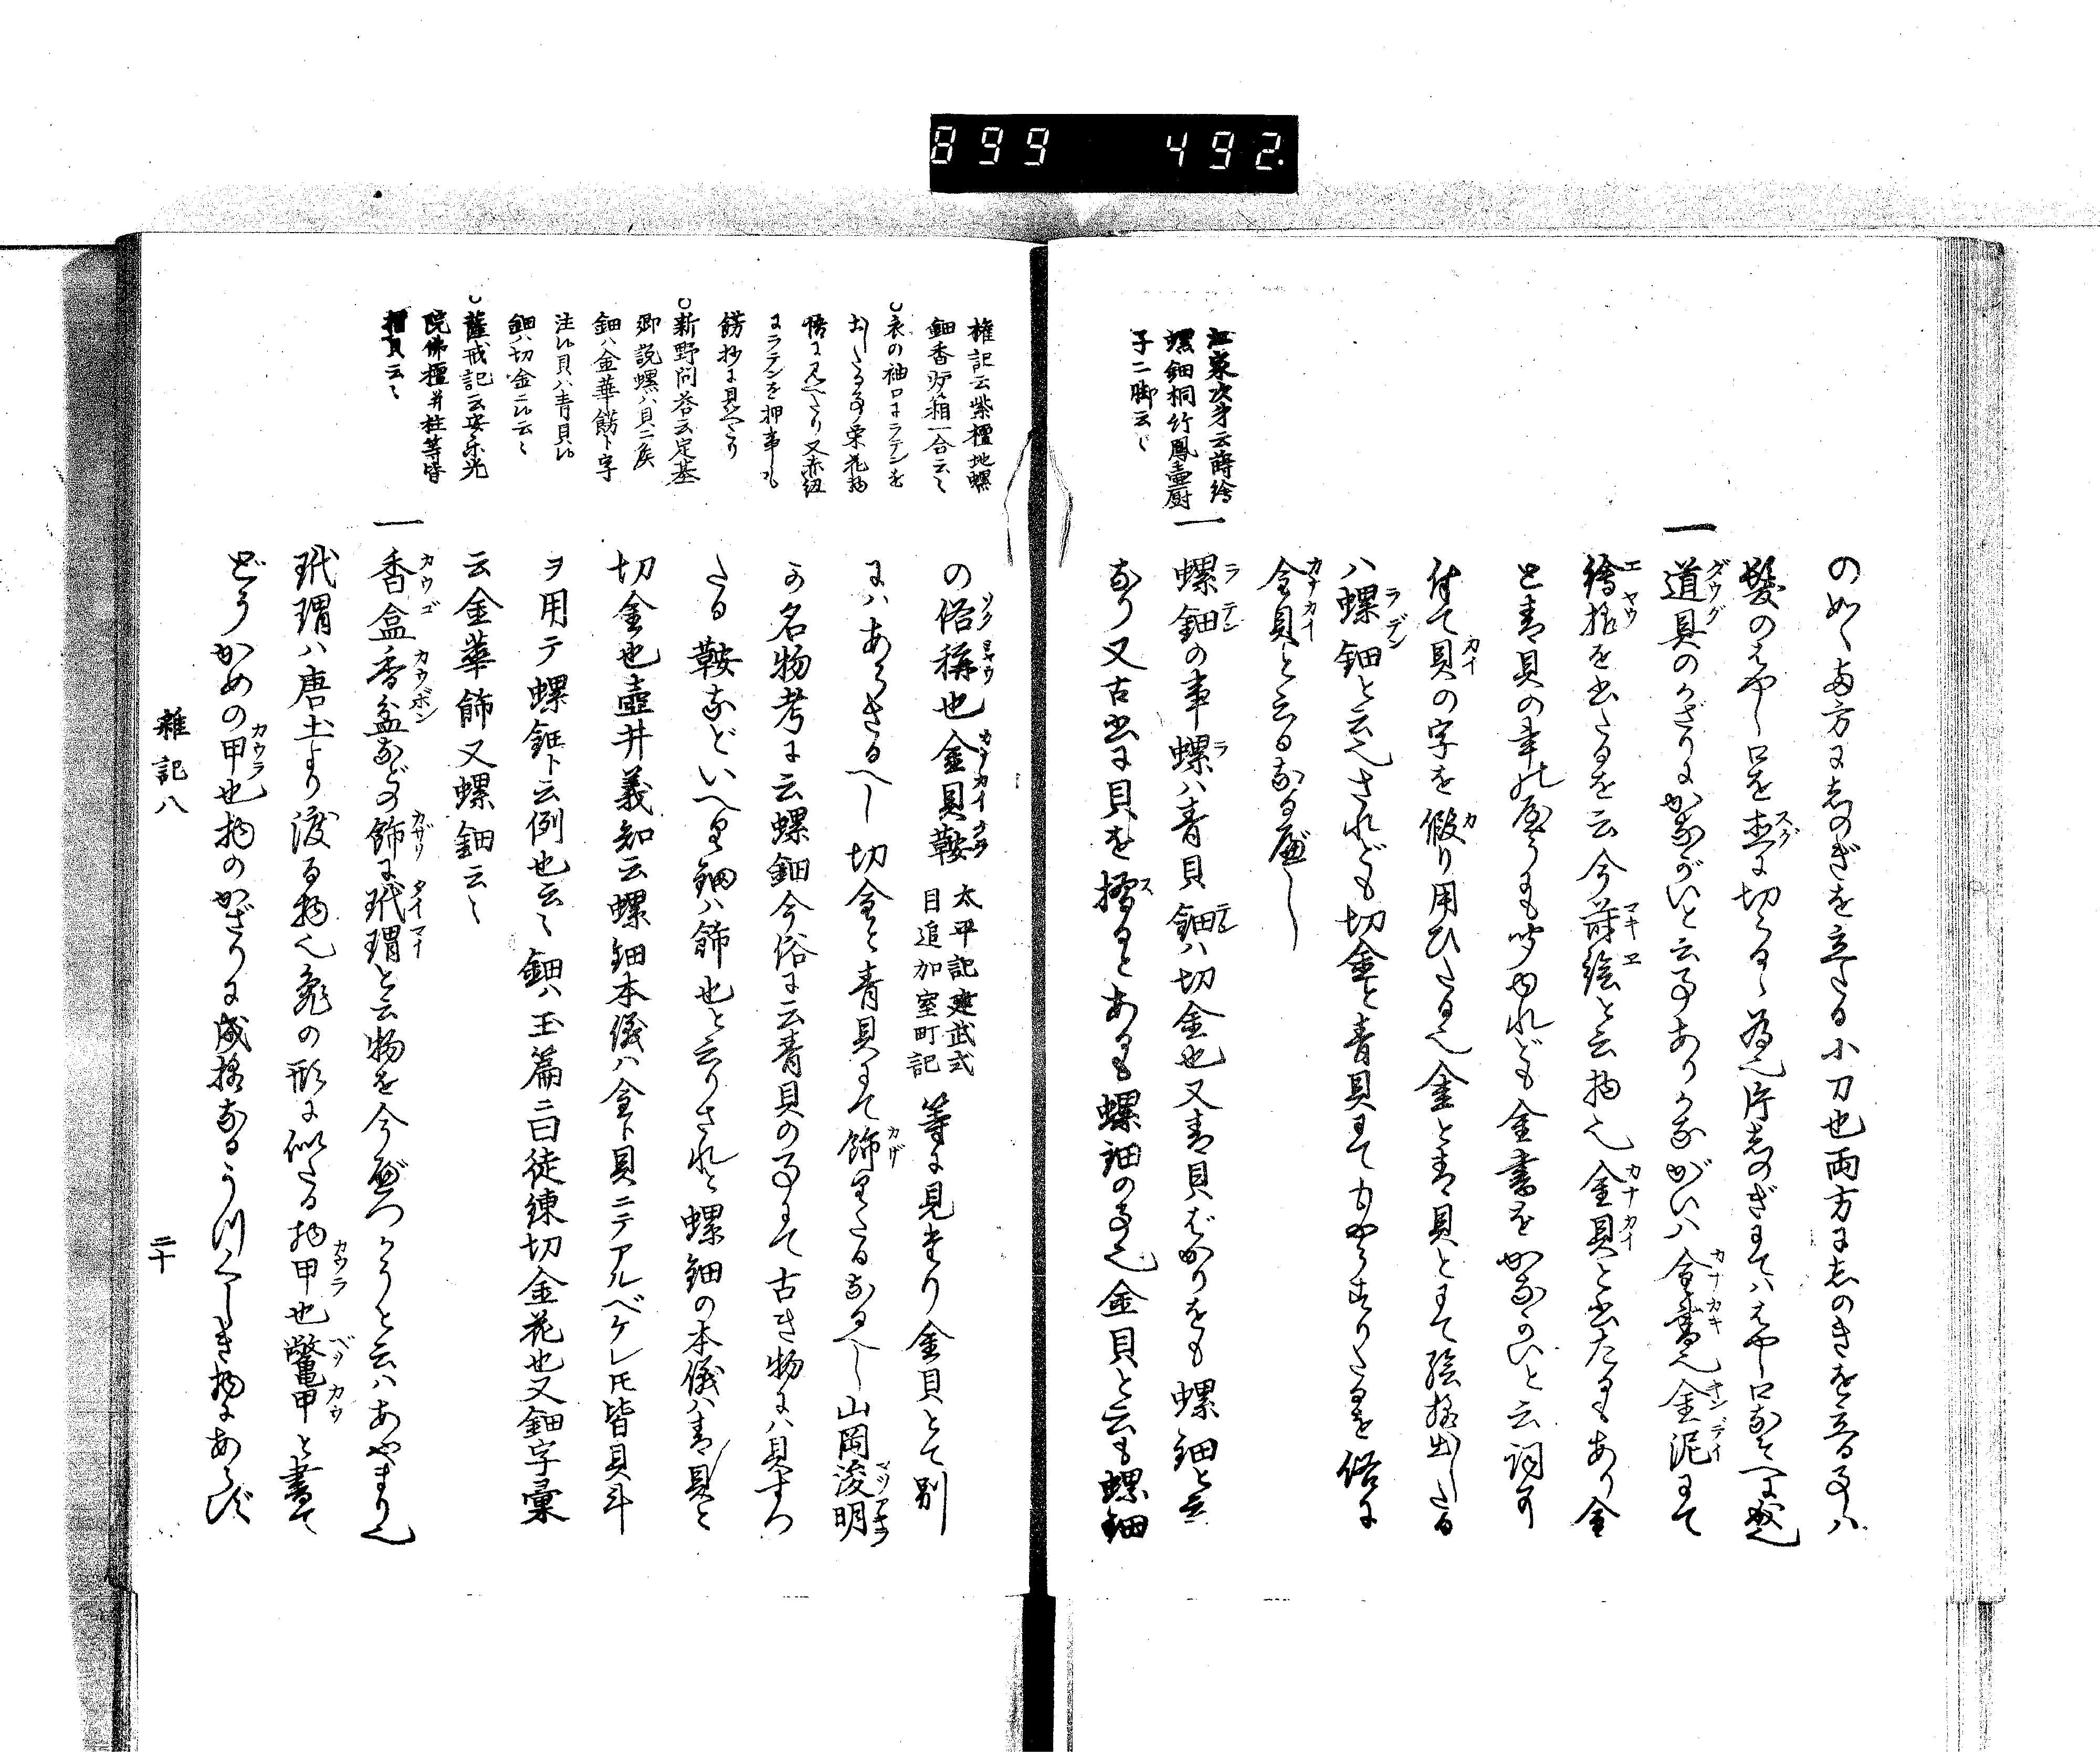 899 492.
江家次才云蒔繪
螺鈿桐竹鳳壷厨
子二脚云〻
の如く両方に志のぎを立たる小刀也両方に志のきを立る事ハ
髪のそやし口を直に切る為也片志のぎにてハそやし口
一 道具のかざりにかながいと云事ありかながいハ金書也金泥にて
繪様を出したるを云今蒔絵と云物也金貝と出たるもあり金
と青貝の事れ共金書をかながいと云詞に
付て貝の字を假り用ひたる也金と青貝とにて絵様出したる
ハ螺鈿と云也されども切金と青貝にてかざりたるを俗に
金貝と云なるべし
一 螺鈿の事螺ハ青貝鈿ハ切金也又青貝ばかりをも螺鈿と云
なり又古書に貝を摺るとあるも螺鈿の事也金貝と云も螺鈿
権記云紫檀地螺
鈿香炉箱一合云〻
○衣の袖口にラテンを
おしたる事栄花物
語に見へたり又赤紐
にラテンを押事も
餝抄に見へたり
○新野問答云定基
卿説螺ハ貝ニ候
鈿ハ金華餝ト字
注候貝ハ青貝候
鈿ハ切金ニ候云〻
○薩戒記云安乐光
院佛檀并柱等皆
摺貝云〻
の俗稱也金貝鞍 太平記建武式目追加室町記 等に見えたり金貝とて別
にハあらざるべし切金と青貝にて飾りたるなるべし山岡浚明
の名物考に云螺鈿今俗に云青貝の事にて古き物にハ貝すつ
たる鞍などいへり鈿ハ飾也と云りされど螺鈿の本儀ハ青貝と
切金也壷井義知云螺鈿本儀ハ金ト貝ニテアルベケレ𪜈皆貝斗
ヲ用テ螺鈿ト云例也云〻鈿ハ玉篇ニ曰徒練切金花也又鈿字彙
云金華飾又螺鈿云〻
一 香盒香盆などの飾に玳瑁と云物を今べつかうと云ハあやまり也
玳瑁ハ唐土より渡る物也亀の形に似たる物甲也鼈甲と書て
どうかめの甲也物のかざりに成様なるうつくしき物にあらず
雜記八
二十